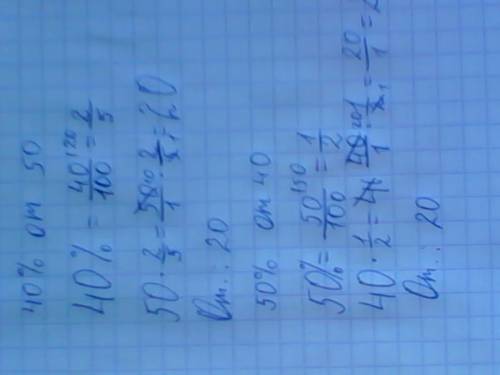 40% от 50
40% = 40/100 |20 = 2/5
50 · 2/5 = 50 10/1 · 2/5 1 = 20
От.: 20
50% от 40
50% = 50/100 |50 = 1/2
40 · 1/2 = 40 20/1 · 1/2 1 = 20/1 = 2
От.: 20